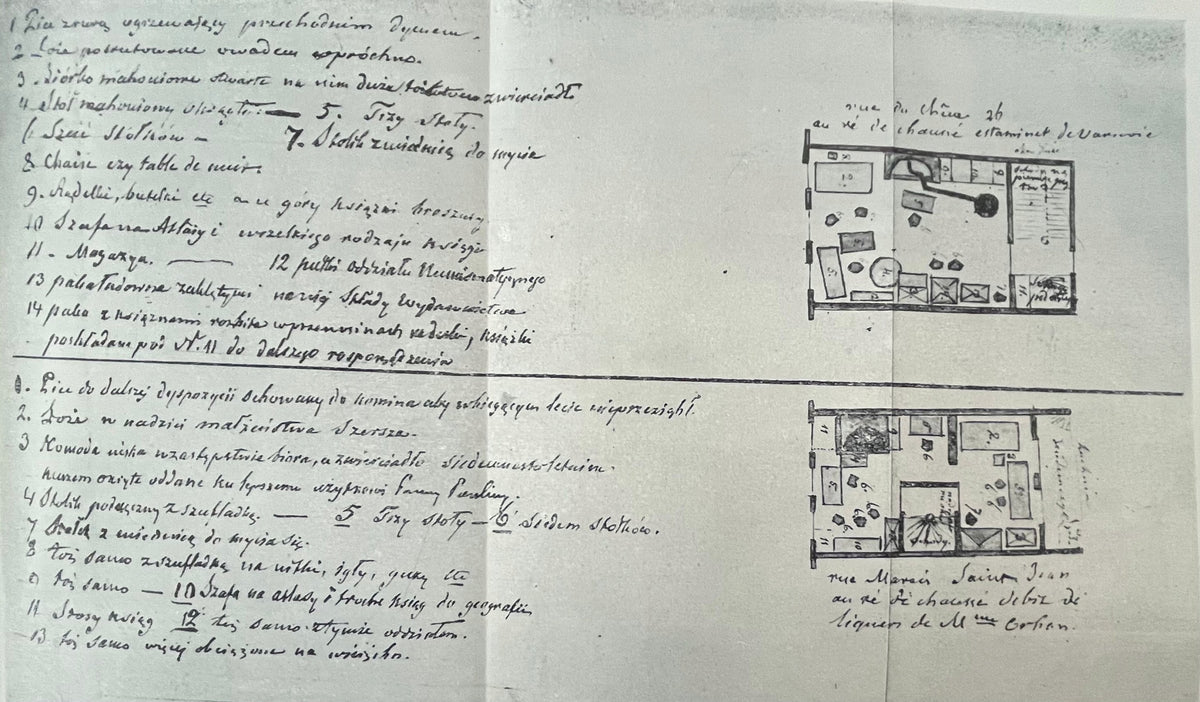 1 Piec z rurą ogrzewający przechodnim dymem.
2 Łoże
3. Biórko mahoniowe otwarte na nim duże zwierciadło
4 Stół mahoniowy okrągły — 5. Trzy stoły.
6 Sześć stołków — 7. Stolik z miednicą do mycia
8 Chaise czy table de nuit.
9. Rądelki, butelki etc a u góry książki broszury
10 Szafa na Atlasy i wszelkiego rodzaju księgi
11 - Magazyn. — 12 pułki oddziału Numismatycznego
13 paka ładowna na wóz Składy Wydawnictwa
14 paka z książkami, książki
poskładam pod N. 11 do dalszego rosporządzenia
1. Piec do dalszéj dyspozycii schowany do komina aby w bieżącym lecie nieprzeziąbł.
2. Łoże w nadziei małżeństwa szersze.
3 Komoda niska w zastępstwie biora, a zwierciadło
oddane ku lepszemu użytkowi Panny Pauliny.
4 Stolik podręczny z szufladką. — 5 Trzy stoły — 6 Siedem stołków.
7 Stołek z miednicą do mycia się.
8 Toż samo z szufladką na nitki, igły, guziki etc
9 toż samo — 10 Szafa na atlasy i trochę ksiąg do geografii
11 Stosy ksiąg 12 toż samo z tymże oddziałem.
13 toż samo więcéj obciążone
rue du Chêne 26
au ré de chaussé estaminet de Varsovie
rue Marais Saint Jean
au ré de chaussé debit de
liqueurs de Mme Orban.